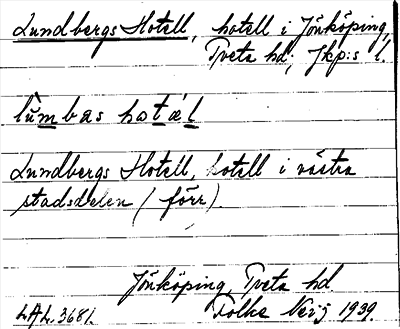 Lundbergs Hotell, hotell i Jönköping,
Tveta hd, Jkp:s l.
lùmbas hotäl
Lundbergs Hotell, hotell i västra
stadsdelen (förr).
Jönköping, Tveta hd.
LAL. 3681. Folke 1939.